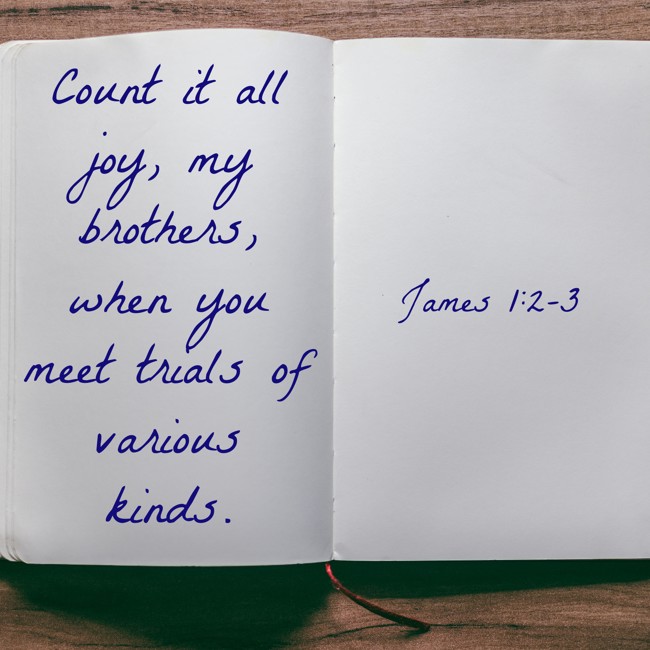 Count it all
joy, my
brothers,
when you
meet trials of
various
kinds.
James 1:2-3